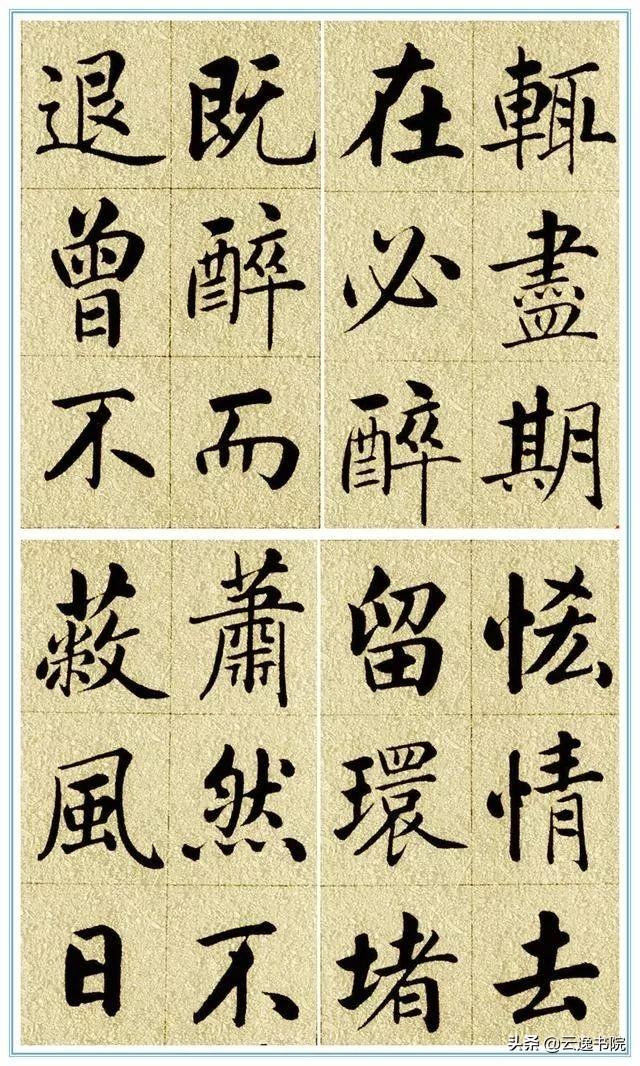 輒盡期
在必醉
既醉而
退曾不
恡情去
留環堵
蕭然不
蔽風日
头条 @云逸书院